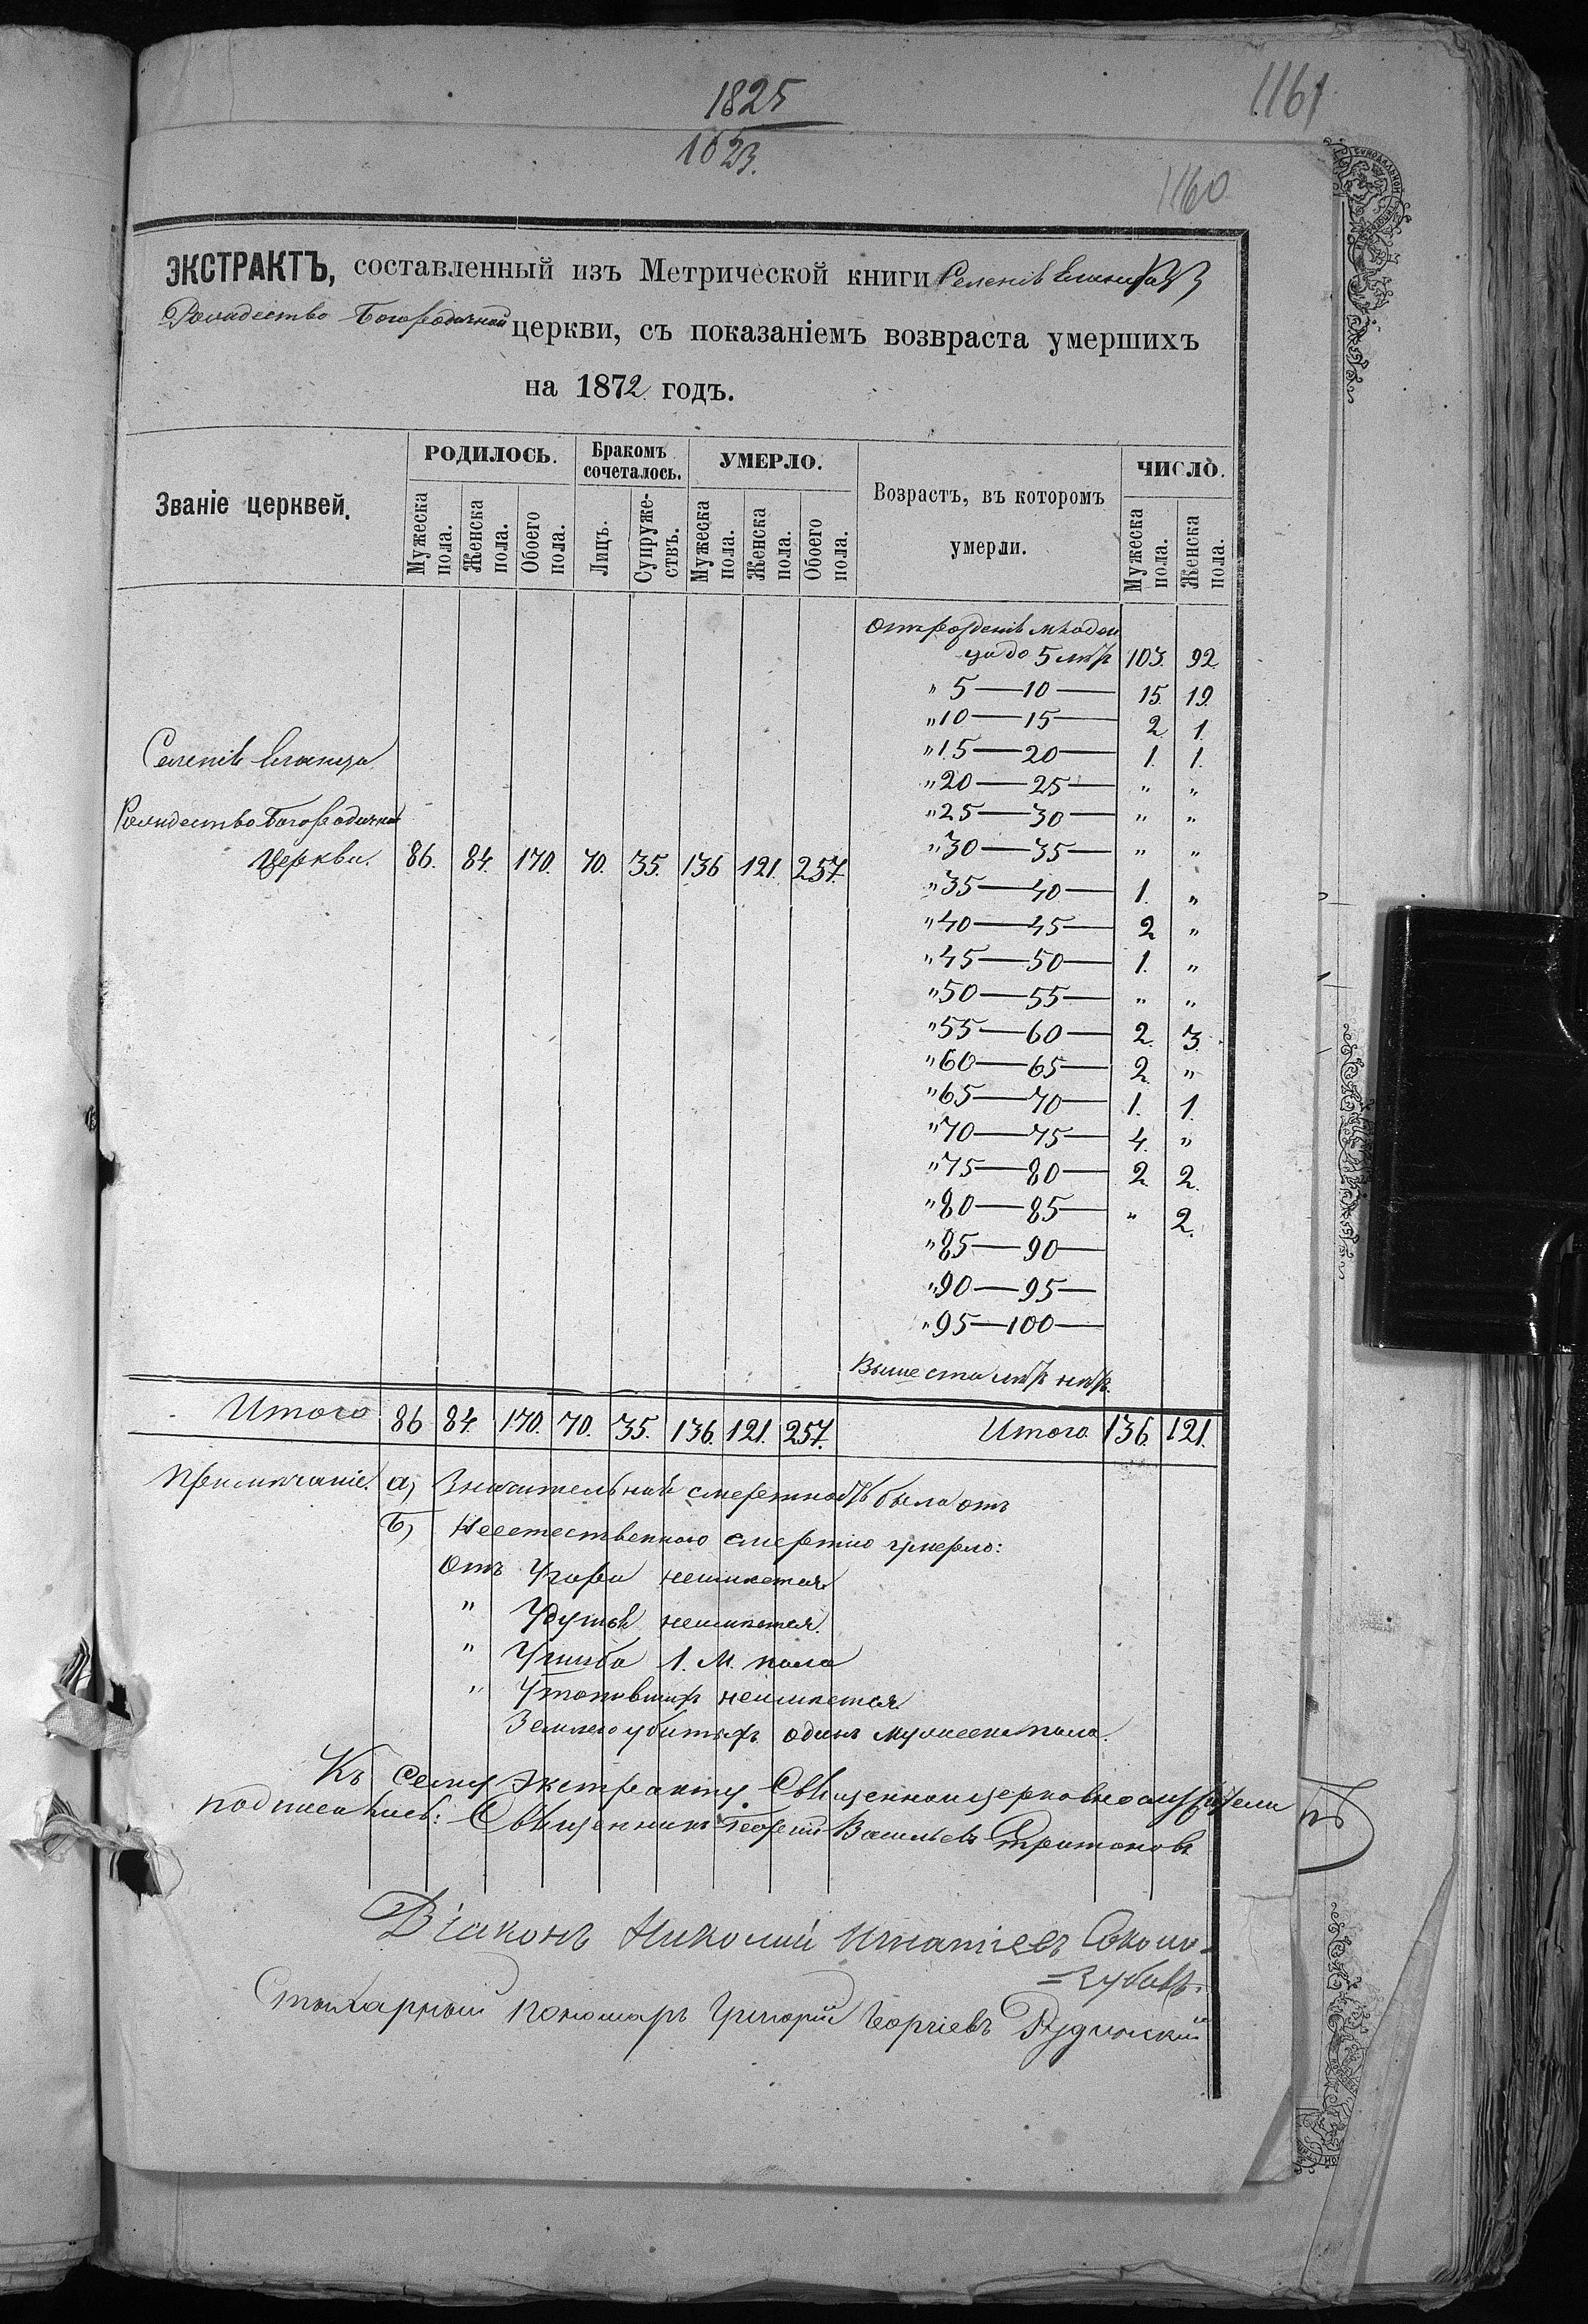 1825
1623.
1161
1160
ЭКСТРАКТЪ, составленный изъ Метрической книги Селенія
Рождество Богородичной церкви, съ показаніемъ возвраста умершихъ
на 1872 годъ.
Званіе церквей. РОДИЛОСЬ. Бракомъ сочеталось. УМЕРЛО. Возрастъ, въ которомъ умерли. ЧИСЛО.
Мужеска пола. Женска пола. Обоего пола. Лицъ. Супружествъ. Мужеска пола. Женска пола. Обоего пола. Мужеска пола. Женска пола.
Отъ рожденія младен
ца до 5 лѣтъ 103. 92.
" 5 — 10 — 15. 19.
" 10 — 15 — 2. 1.
" 15 — 20 — 1. 1.
" 20 — 25 — " "
" 25 — 30 — " "
" 30 — 35 — " "
" 35 — 40 — 1. "
" 40 — 45 — 2 "
" 45 — 50 — 1. "
" 50 — 55 — " "
" 55 — 60 — 2. 3.
" 60 — 65 — 2. "
" 65 — 70 — 1. 1.
" 70 — 75 — 4. "
" 75 — 80 — 2. 2.
" 80 — 85 — " 2.
" 85 — 90 —
" 90 — 95 —
" 95 — 100 —
Выше ста лѣтъ нѣтъ.
Селенія
Рождество Богородичной
Церкви. 86. 84. 170. 70. 35. 136 121. 257.
Итого 86 84. 170. 70. 35. 136. 121. 257. Итого 136. 121.
Примѣчаніе. а) Значительная смертность была отъ
Б) Неестественною смертію умерло:
Отъ Угара неимѣется.
" Удушья неимѣется.
" Ушиба 1. М. пола
" Утопившихъ неимѣется.
Землею убитыхъ одинъ мужеска пола.
Къ сему экстракту Священноцерковнослужители
подписались: Священникъ Георгій Васильевъ
Діаконъ Николай Игнатіевъ Соколо-
=Зубовъ.
Стихарный пономарь Григорій Георгіевъ Рудинскій